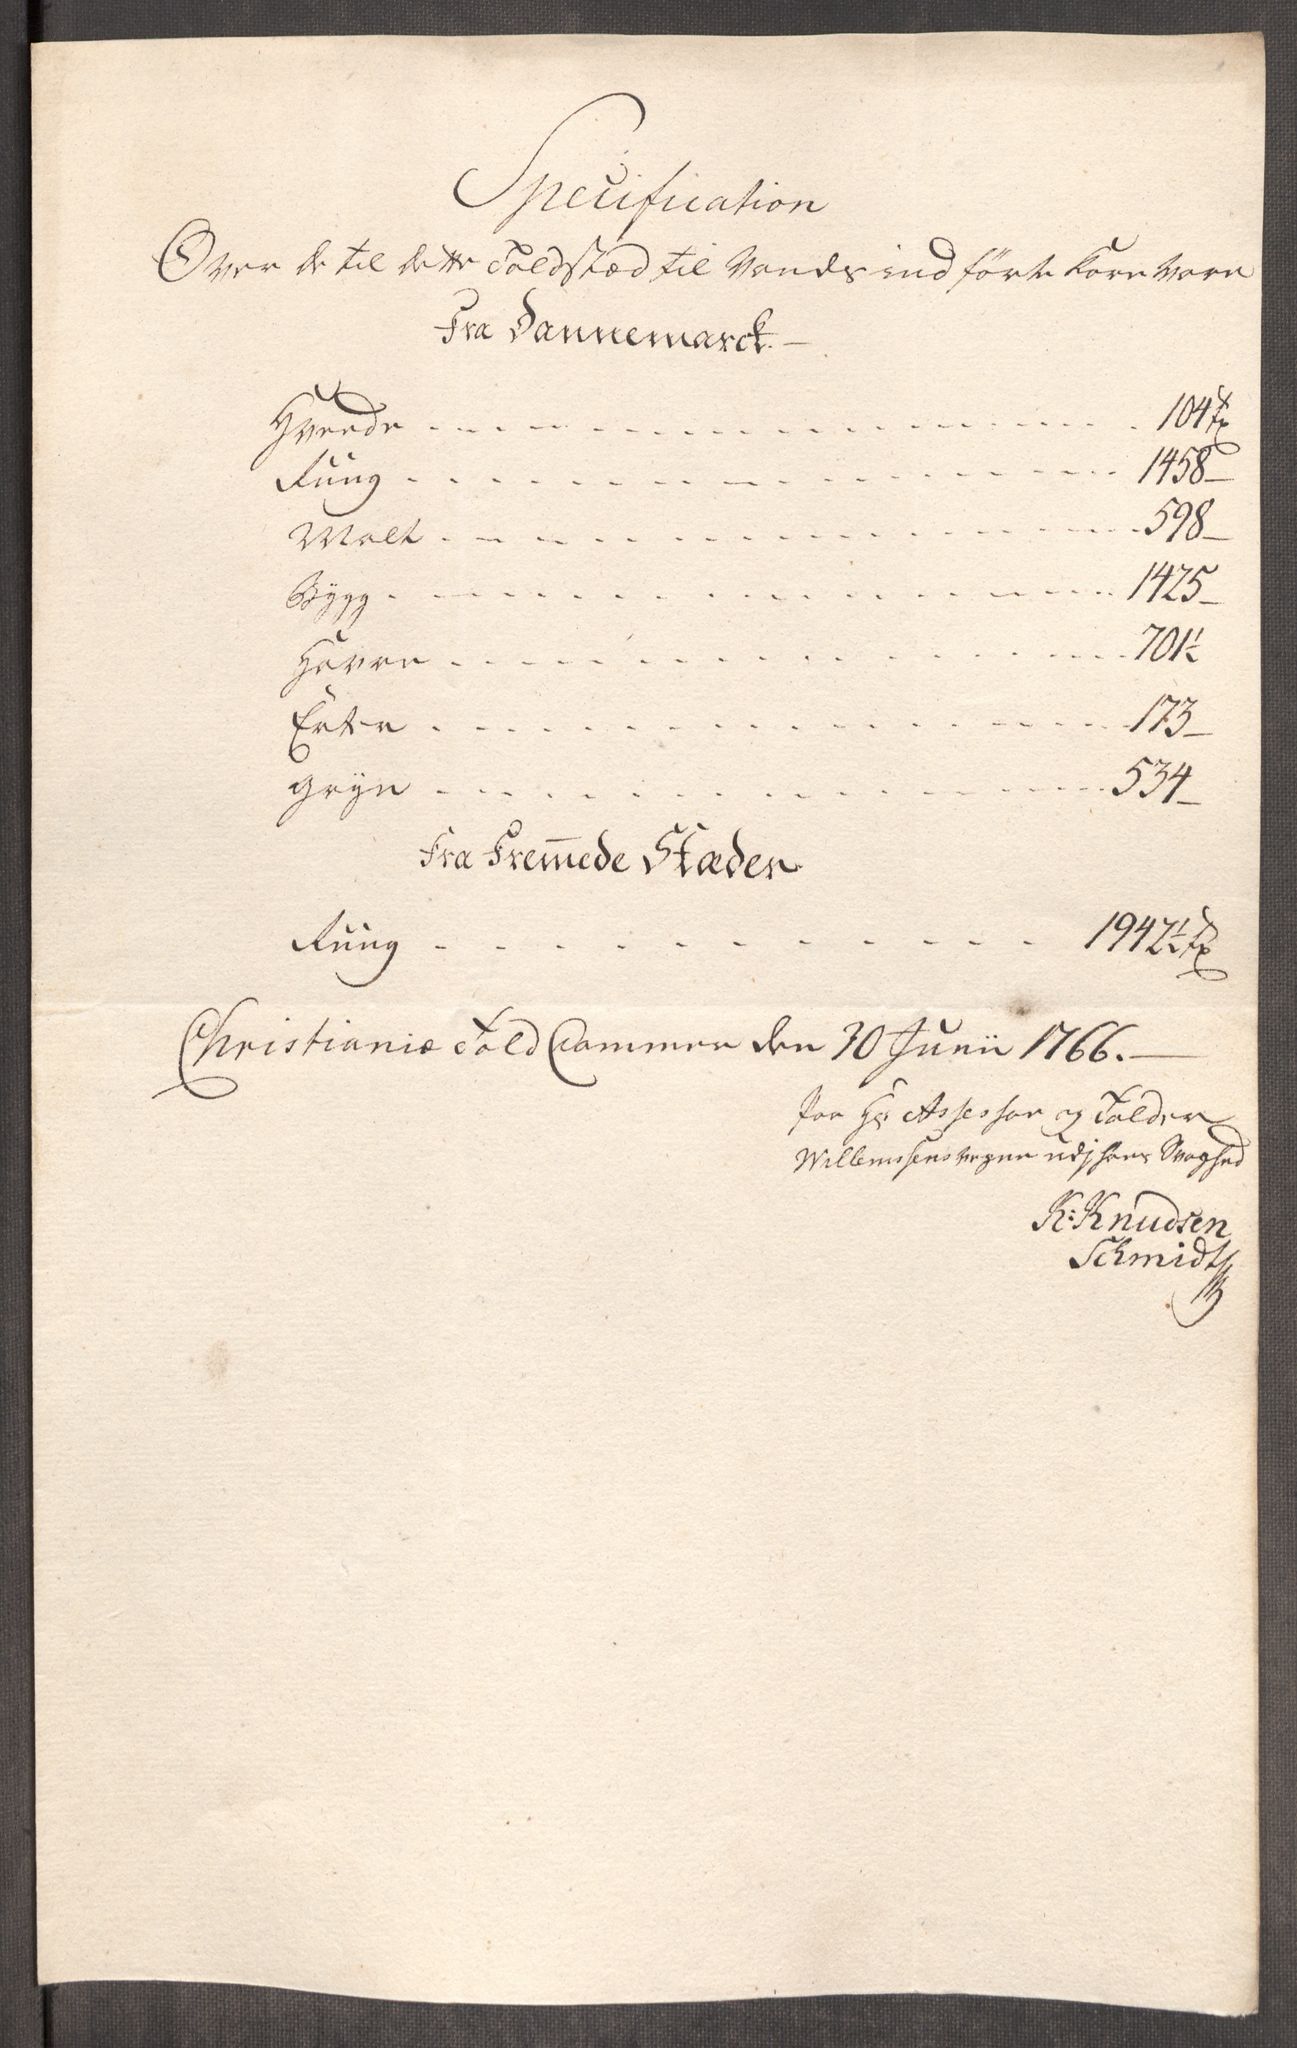 Specification
Over de til dette Toldstæd til Vands ind förte Korn Vare
Fra Dannemarck. —
Hvede . . . . . . . . . . . . . . . . 104 Tr
Rüug . . . . . . . . . . . . . . . . 1458 —
Malt . . . . . . . . . . . . . . . . 598 —
Bÿgg . . . . . . . . . . . . . . . . 1425 —
Havre . . . . . . . . . . . . . . . . 701½
Erter . . . . . . . . . . . . . . . . 173 —
Grÿn . . . . . . . . . . . . . . . . 534 —
Fra Frem̅ede Stæder
Rüug . . . . . . . . . . . . 1947½ Tr
Christianiæ Told Cammer den 30 Junii 1766. —
Paa Hr Assessor og Tolder
Willemsens vegne udj hans Svaghed
K: Knudsen
Schmidt